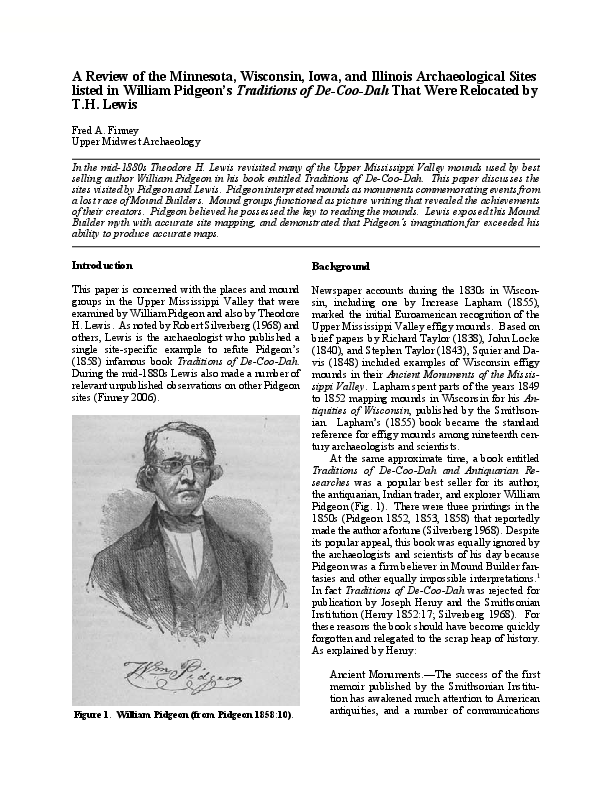 A Review of the Minnesota, Wisconsin, Iowa, and Illinois Archaeological Sites
listed in William Pidgeon's Traditions of De-Coo-Dah That Were Relocated by
T.H. Lewis
Fred A. Finney
Upper Midwest Archaeology
In the mid-1880s Theodore H. Lewis revisited many of the Upper Mississippi Valley mounds used by best
selling author William Pidgeon in his book entitled Traditions of De-Coo-Dah. This paper discusses the
sites visited by Pidgeon and Lewis. Pidgeon interpreted mounds as monuments commemorating events from
a lost race of Mound Builders. Mound groups functioned as picture writing that revealed the achievements
of their creators. Pidgeon believed he possessed the key to reading the mounds. Lewis exposed this Mound
Builder myth with accurate site mapping, and demonstrated that Pidgeon's imagination far exceeded his
ability to produce accurate maps.
Introduction
This paper is concerned with the places and mound
groups in the Upper Mississippi Valley that were
examined by William Pidgeon and also by Theodore
H. Lewis. As noted by Robert Silverberg (1968) and
others, Lewis is the archaeologist who published a
single site-specific example to refute Pidgeon's
(1858) infamous book Traditions of De-Coo-Dah.
During the mid-1880s Lewis also made a number of
relevant unpublished observations on other Pidgeon
sites (Finney 2006).
Wm Pidgeon
Figure 1. William Pidgeon (from Pidgeon 1858:10).
Background
Newspaper accounts during the 1830s in Wiscon-
sin, including one by Increase Lapham (1855),
marked the initial Euroamerican recognition of the
Upper Mississippi Valley effigy mounds. Based on
brief papers by Richard Taylor (1838), John Locke
(1840), and Stephen Taylor (1843), Squier and Da-
vis (1848) included examples of Wisconsin effigy
mounds in their Ancient Monuments of the Missis-
sippi Valley. Lapham spent parts of the years 1849
to 1852 mapping mounds in Wisconsin for his An-
tiquities of Wisconsin, published by the Smithson-
ian. Lapham's (1855) book became the standard
reference for effigy mounds among nineteenth cen-
tury archaeologists and scientists.
At the same approximate time, a book entitled
Traditions of De-Coo-Dah and Antiquarian Re-
searches was a popular best seller for its author,
the antiquarian, Indian trader, and explorer William
Pidgeon (Fig. 1). There were three printings in the
1850s (Pidgeon 1852, 1853, 1858) that reportedly
made the author a fortune (Silverberg 1968). Despite
its popular appeal, this book was equally ignored by
the archaeologists and scientists of his day because
Pidgeon was a firm believer in Mound Builder fan-
tasies and other equally impossible interpretations.1
In fact Traditions of De-Coo-Dah was rejected for
publication by Joseph Henry and the Smithsonian
Institution (Henry 1852:17; Silverberg 1968). For
these reasons the book should have become quickly
forgotten and relegated to the scrap heap of history.
As explained by Henry:
Ancient Monuments.—The success of the first
memoir published by the Smithsonian Institu-
tion has awakened much attention to American
antiquities, and a number of communications